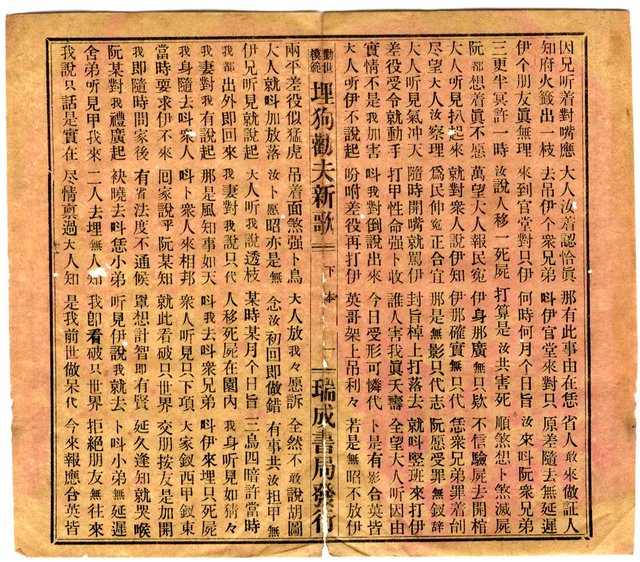 因兄听着對嘴應 大人汝着認恰眞 那有此事由在恁 省人敢來做証人
知府火籤出一枝 去吊伊个衆兄弟 呌伊官堂來對只 原差隨去無延遲
伊个朋友眞無理 來到官堂對只伊 何時何月个日旨 汝來呌阮衆兄弟
三更半冥許一時 汝說人移一死屍 打算是汝共害死 順煞想卜煞滅屍
阮都想着眞不愿 萬望大人報民寃 伊身那廣無只欵 不信驗屍去開棺
大人听見扒起來 就對衆人說伊知 伊那確實無只代 恁衆兄弟罪着刣
尽望大人汝察理 為民伸寃正合宜 那是無影只代志 阮愿受罪無釵辞
大人听見氣冲天 隨時開嘴就罵伊 封旨棹上打落去 就呌竪班來打伊
差役受令就動手 打甲性命强卜收 誰人害我眞夭壽 全望大人听因由
實情不是我加害 呌我對倒說出來 今日受形可憐代 卜是有影合英皆
大人听伊不說起 吩咐差役再打伊 英哥架上吊利々 若是無昭不放伊
勸世模範 埋狗勸夫新歌 下本 一 瑞成書局發行
兩平差役似猛虎 吊着面煞强卜烏 大人放我々愿訴 全然不敢說胡圖
大人就呌加放落 汝卜愿昭亦是無 念汝初回即做錯 有事共汝担甲無
伊兄听見就說起 大人听我說透枝 某時某月个日旨 三烏四暗許當時
我都出外即回來 我妻對我說只代 人移死屍在園內 我身听見如猜々
我妻對我有說起 那是風知事如天 呌我去呌衆兄弟 呌伊來埋只死屍
我身隨去呌衆人 呌卜衆人來相邦 衆人听見只下項 大家釵西甲釵東
當時耍求伊不來 回家說乎阮某知 就此看破只世界 交朋按友是加開
我即隨時問家後 有省法度不通候 單想計智即有賢 延久逢知就哭喉
阮某對我禮廣起 袂曉去呌恁小弟 听見伊說我就去 卜呌小弟無延遲
舍弟听見甲我來 二人去埋無人知 我卽看破只世界 拒絕朋友無往來
我說只話是實在 尽情禀過大人知 是我前世做呆代 今來報應合英皆